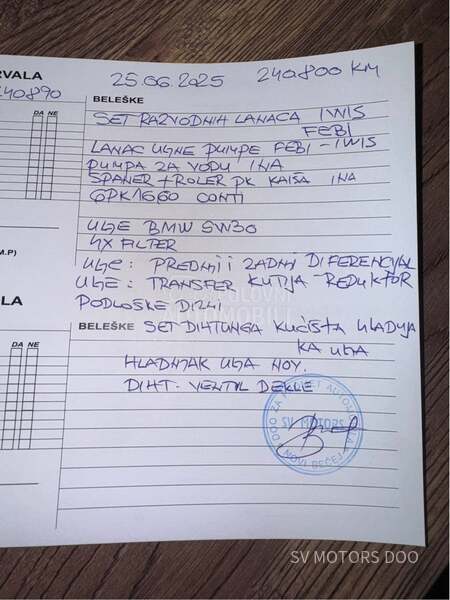 RVALA
25.06.2025 240.800 KM
240890
BELEŠKE
DA NE
SET RAZVODNIH LANACA IWIS
FEBI
LANAC ULJNE PUMPE FEBI-IWIS
PUMPA ZA VODU INA
ŠPANER + ROLER PK KAIŠA INA
6PK1660 CONTI
ULJE BMW 5W30
4X FILTER
M.P)
ULJE: PREDNJI I ZADNJI DIFERENCIJAL
ULJE: TRANSFER KUTIJA - REDUKTOR
PODLOŠKE DIZNI
LA
BELEŠKE SET DIHTUNGA KUĆIŠTA HLADNJA
KA ULJA
DA NE
HLADNJAK ULJA NOV.
DIHT. VENTIL DEKLE
SV MOTORS
NOVI BEČEJ
SV MOTORS DOO